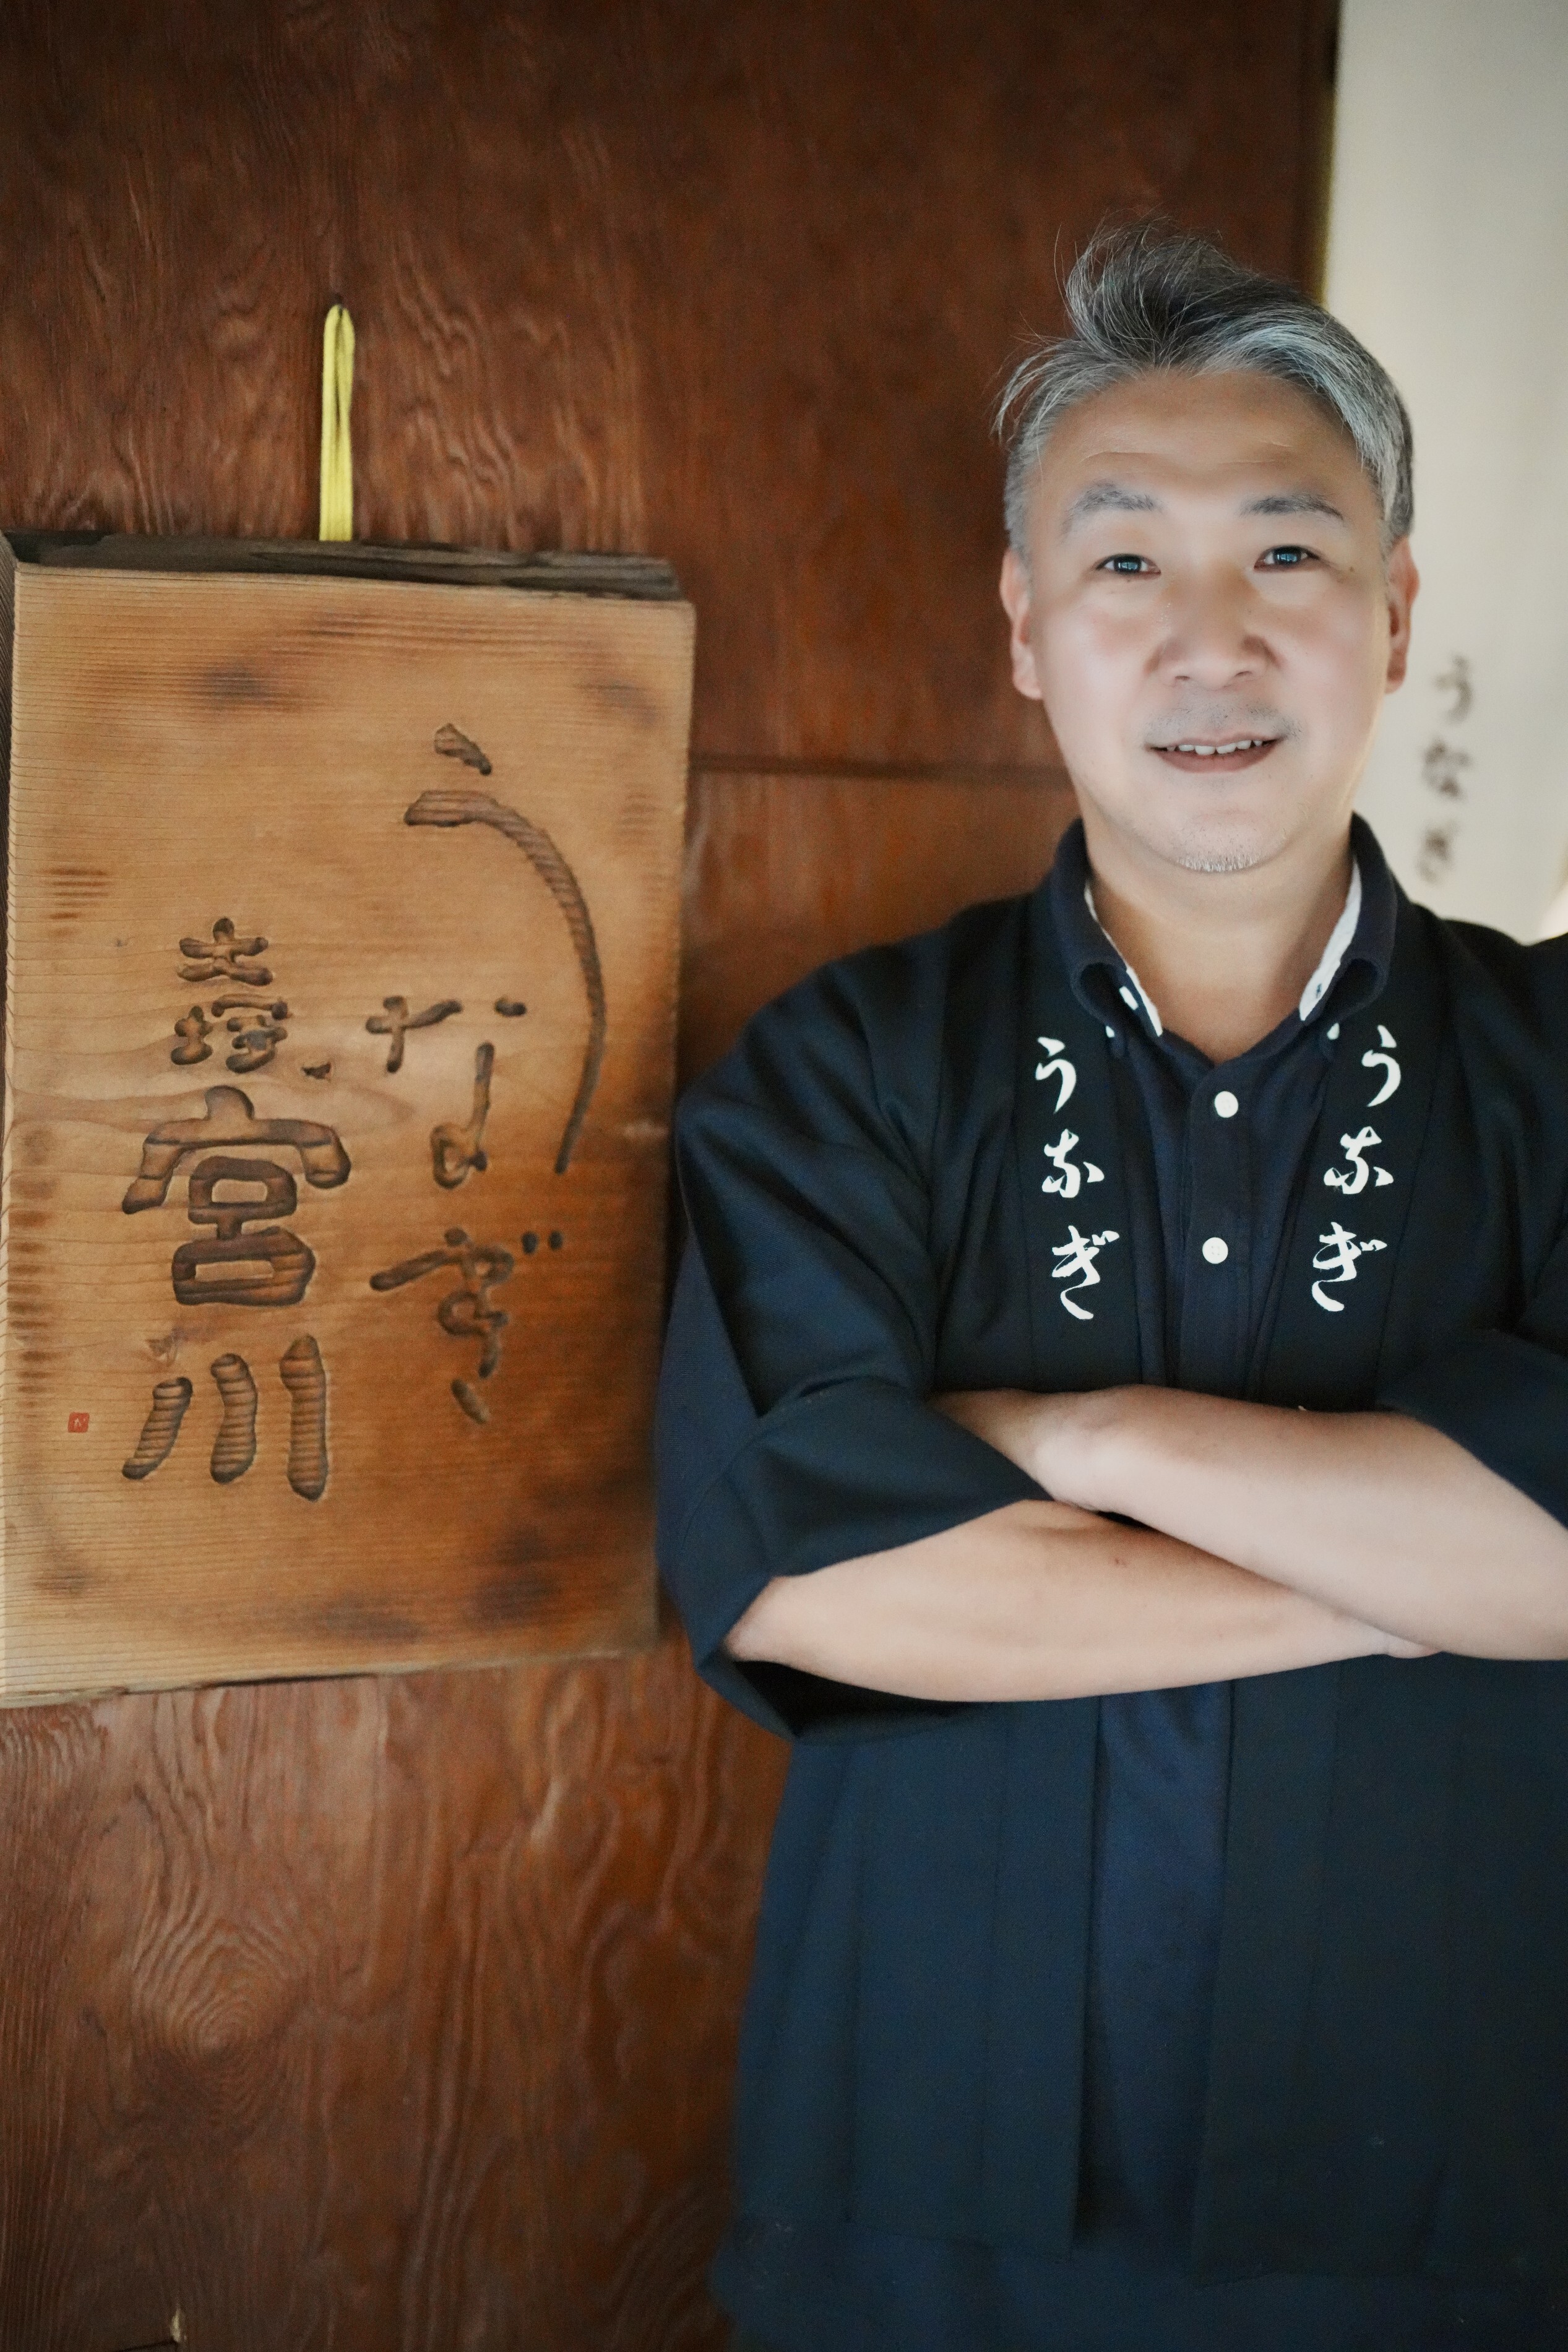 うなぎ
大塚
宮川
うなぎ
うなぎ
うなぎ